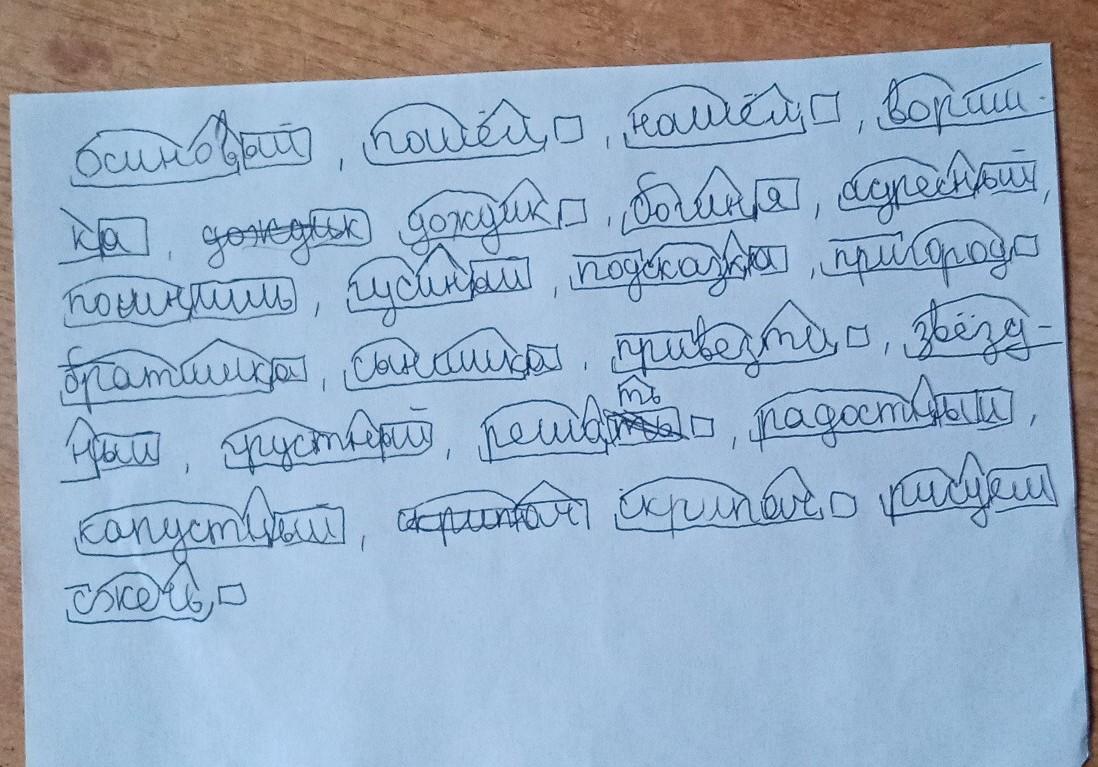 осиновый, пошёл, нашёл, вориш-
ка, дождик дождик, богиня, адресный,
помнишь, гусиный, подсказка, пригород
братишка, сынишка, привезти, звёзд-
ный, грустный, решать ть, радостный,
капустный, скрипач скрипач рисуеш
сжечь